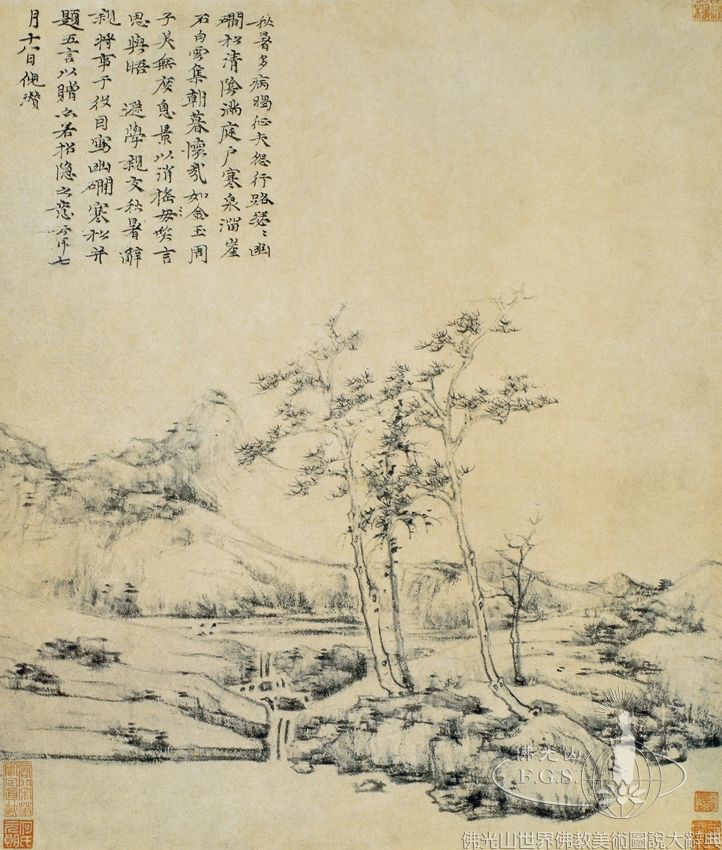 秋暑多病暍征夫怨行路瑟〻幽
澗松清陰滿庭戶寒泉溜崖
石白雲集朝暮懷哉如金玉周
子美無度息景以消搖毋笑言
思與晤 遜學親友秋暑辭
親將事于役因寫幽澗寒松并
題五言以贈亦若招隱之意云耳七
月十八日倪瓚
佛光山
F.G.S.
佛光山世界佛教美術圖說大辭典